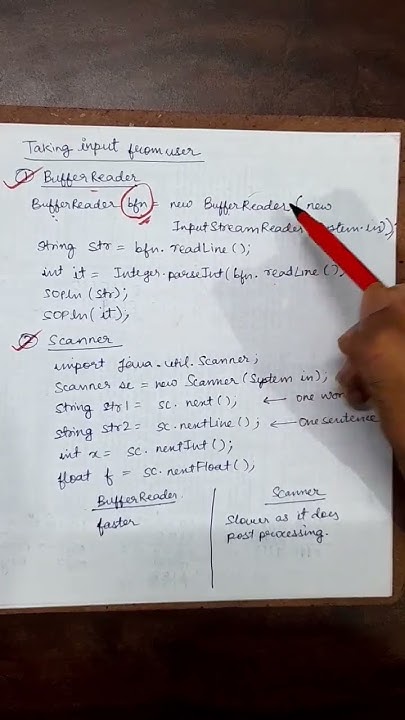 Taking input from user
① BufferReader
BufferReader bfn = new BufferReader (new
InputStreamReader System.in));
String str = bfn.readLine();
int it = Integer.parseInt(bfn.readLine()
SOPln(str);
SOPln(it);
② Scanner
import java.util.Scanner;
Scanner sc = new Scanner(System in);
String str1 = sc.next(); ← one wor
String str2 = sc.nextLine(); ← One sentence
int x = sc.nextInt();
float f = sc.nextFloat();
BufferReader
faster
Scanner
Slower as it does
post processing.